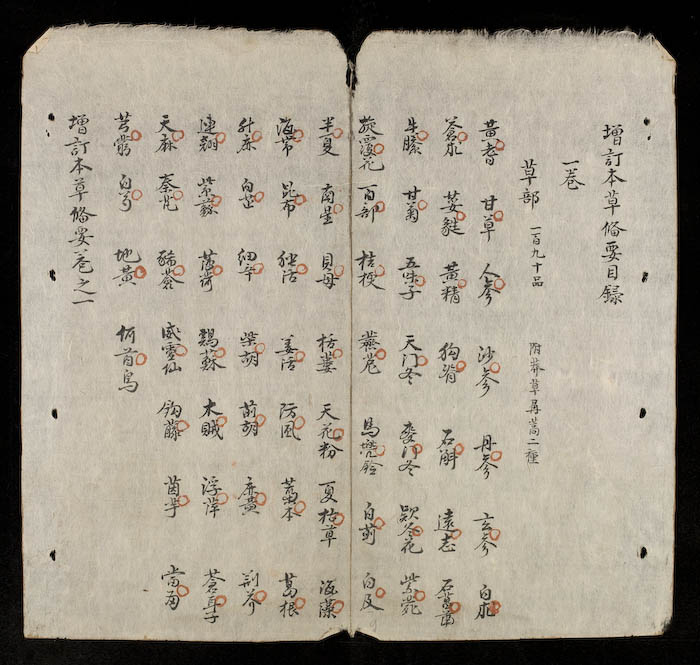 增訂本草俻要目錄
一卷
草部 一百九十品 附莽草再蒿二種
黃耆 甘草 人參 沙參 丹參 玄參 白朮
蒼朮 萎蕤 黃精 狗脊 石斛 遠志 石菖蒲
牛膝 甘菊 五味子 天门冬 麥门冬 欵冬花 紫菀
旋覆花 百部 桔梗 馬兜鈴 白前 白及
半夏 南星 貝母 栝蔞 天花粉 夏枯草 海藻
海帶 昆布 独活 羌活 防風 藁本 葛根
升麻 白芷 細辛 柴胡 前胡 麻黃 荊芥
連翹 紫蘇 薄荷 鷄蘇 木賊 浮萍 蒼耳子
天麻 秦艽 豨薟 威靈仙 鈎藤 茵芋 當歸
芎藭 白芍 地黃 何首烏
增訂本草俻要卷之一